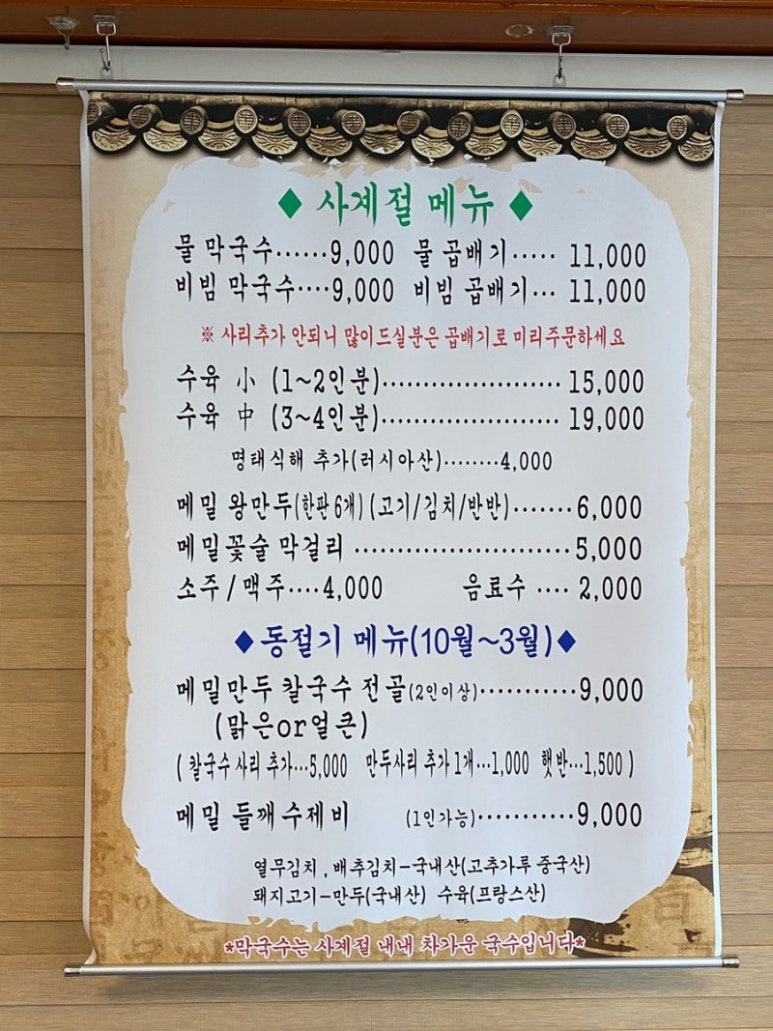 ◆ 사계절 메뉴 ◆
물 막국수······9,000 물 곱배기····· 11,000
비빔 막국수····9,000 비빔 곱배기··· 11,000
※ 사리추가 안되니 많이드실분은 곱배기로 미리주문하세요
수육 小 (1~2인분)······················ 15,000
수육 中 (3~4인분)······················ 19,000
명태식해 추가(러시아산)········4,000
메밀 왕만두(한판 6개) (고기/김치/반반)·······6,000
메밀꽃술 막걸리 ··························5,000
소주/맥주····4,000 음료수 ···· 2,000
◆동절기 메뉴(10월~3월)◆
메밀만두 칼국수 전골(2인이상)···········9,000
(맑은or얼큰)
( 칼국수사리 추가···5,000 만두사리 추가 1개···1,000 햇반···1,500 )
메밀 들깨 수제비 (1인가능)···········9,000
열무김치 , 배추김치-국내산(고추가루 중국산)
돼지고기-만두(국내산) 수육(프랑스산)
*막국수는 사계절 내내 차가운 국수입니다*